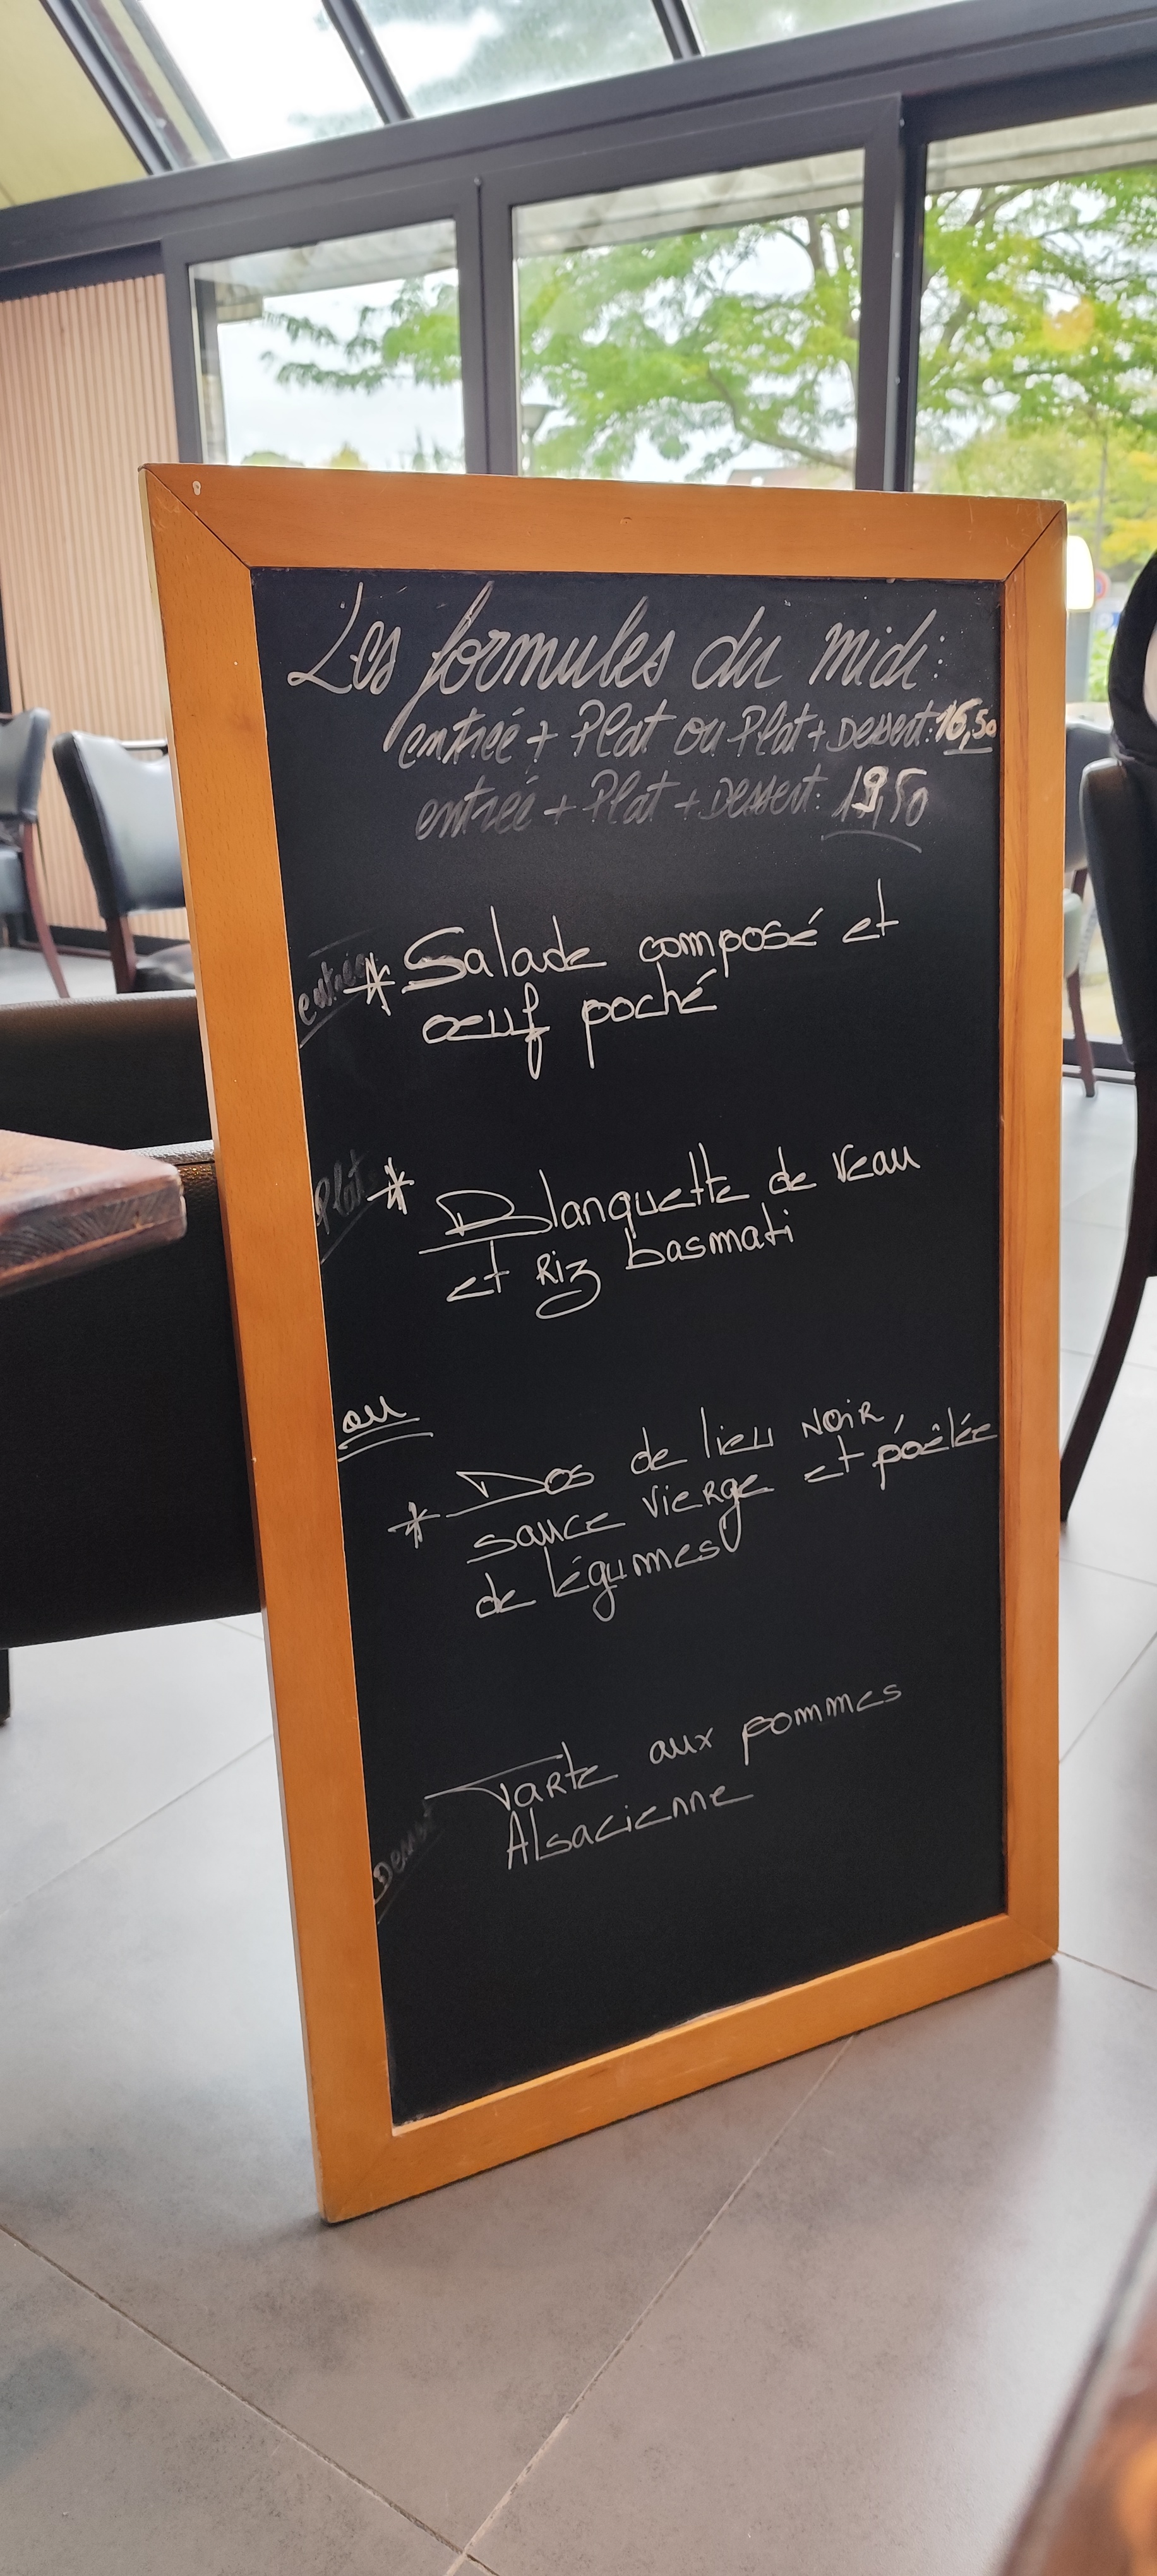 Les formules du midi:
entrée + Plat ou Plat + Dessert: 16,50
entrée + Plat + Dessert: 19,50
entrée * Salade composé et
œuf poché
Plat * Blanquette de veau
et Riz basmati
ou
* Dos de lieu NOIR,
sauce vierge et poêlée
de légumes
Tarte aux pommes
Dessert Alsacienne